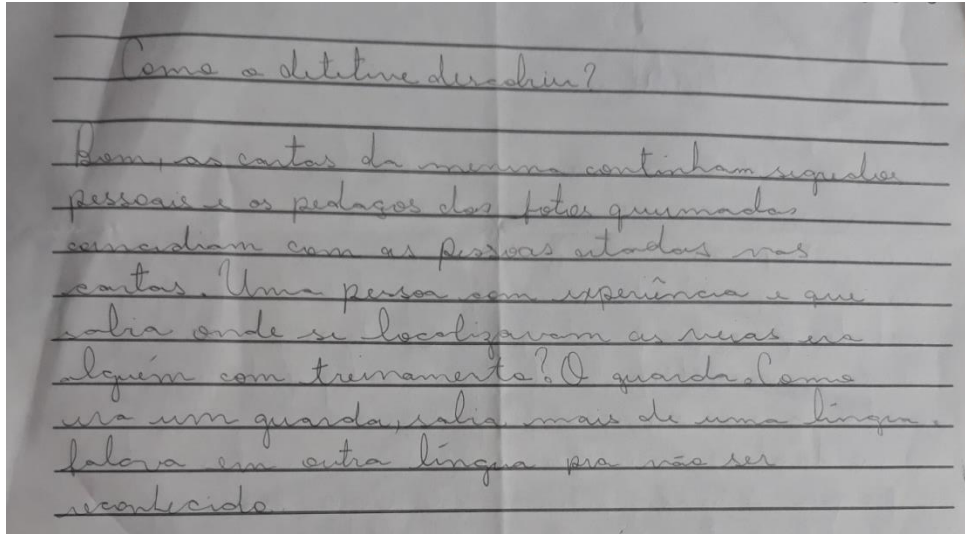 Como o detetive descobriu?
Bem, as cartas da menina continham segredos
pessoais e os pedaços das fotos queimadas
coincidiam com as pessoas citadas nas
cartas. Uma pessoa com experiência e que
sabia onde se localizavam as veias era
alguém com treinamento? O guarda. Como
era um guarda, sabia mais de uma língua.
falava em outra língua pra não ser
reconhecido.